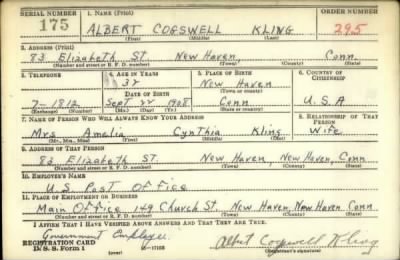 SERIAL NUMBER 1. NAME (Print) ORDER NUMBER
175 ALBERT COGSWELL KLING 295
(First) (Middle) (Last)
2. ADDRESS (Print)
83 Elizabeth St. New Haven, Conn.
(Number and street or R. F. D. number) (Town) (County) (State)
3. TELEPHONE 4. AGE IN YEARS 5. PLACE OF BIRTH 6. COUNTRY OF CITIZENSHIP
32 New Haven
DATE OF BIRTH (Town or county)
7-1812 Sept 22 1908 Conn U.S.A
(Exchange) (Number) (Mo.) (Day) (Yr.) (State or country)
7. NAME OF PERSON WHO WILL ALWAYS KNOW YOUR ADDRESS 8. RELATIONSHIP OF THAT PERSON
Mrs Amelia Cynthia Kling Wife
(Mr., Mrs., Miss) (First) (Middle) (Last)
9. ADDRESS OF THAT PERSON
83 Elizabeth St. New Haven, New Haven, Conn
(Number and street or R. F. D. number) (Town) (County) (State)
10. EMPLOYER'S NAME
U.S. Post Office
11. PLACE OF EMPLOYMENT OR BUSINESS
Main Office 149 Church St. New Haven, New Haven Conn
(Number and street or R. F. D. number) (Town) (County) (State)
I AFFIRM THAT I HAVE VERIFIED ABOVE ANSWERS AND THAT THEY ARE TRUE.
Government Employee
REGISTRATION CARD
D. S. S. Form 1 (over) Albert Cogswell Kling
(Registrant's signature)